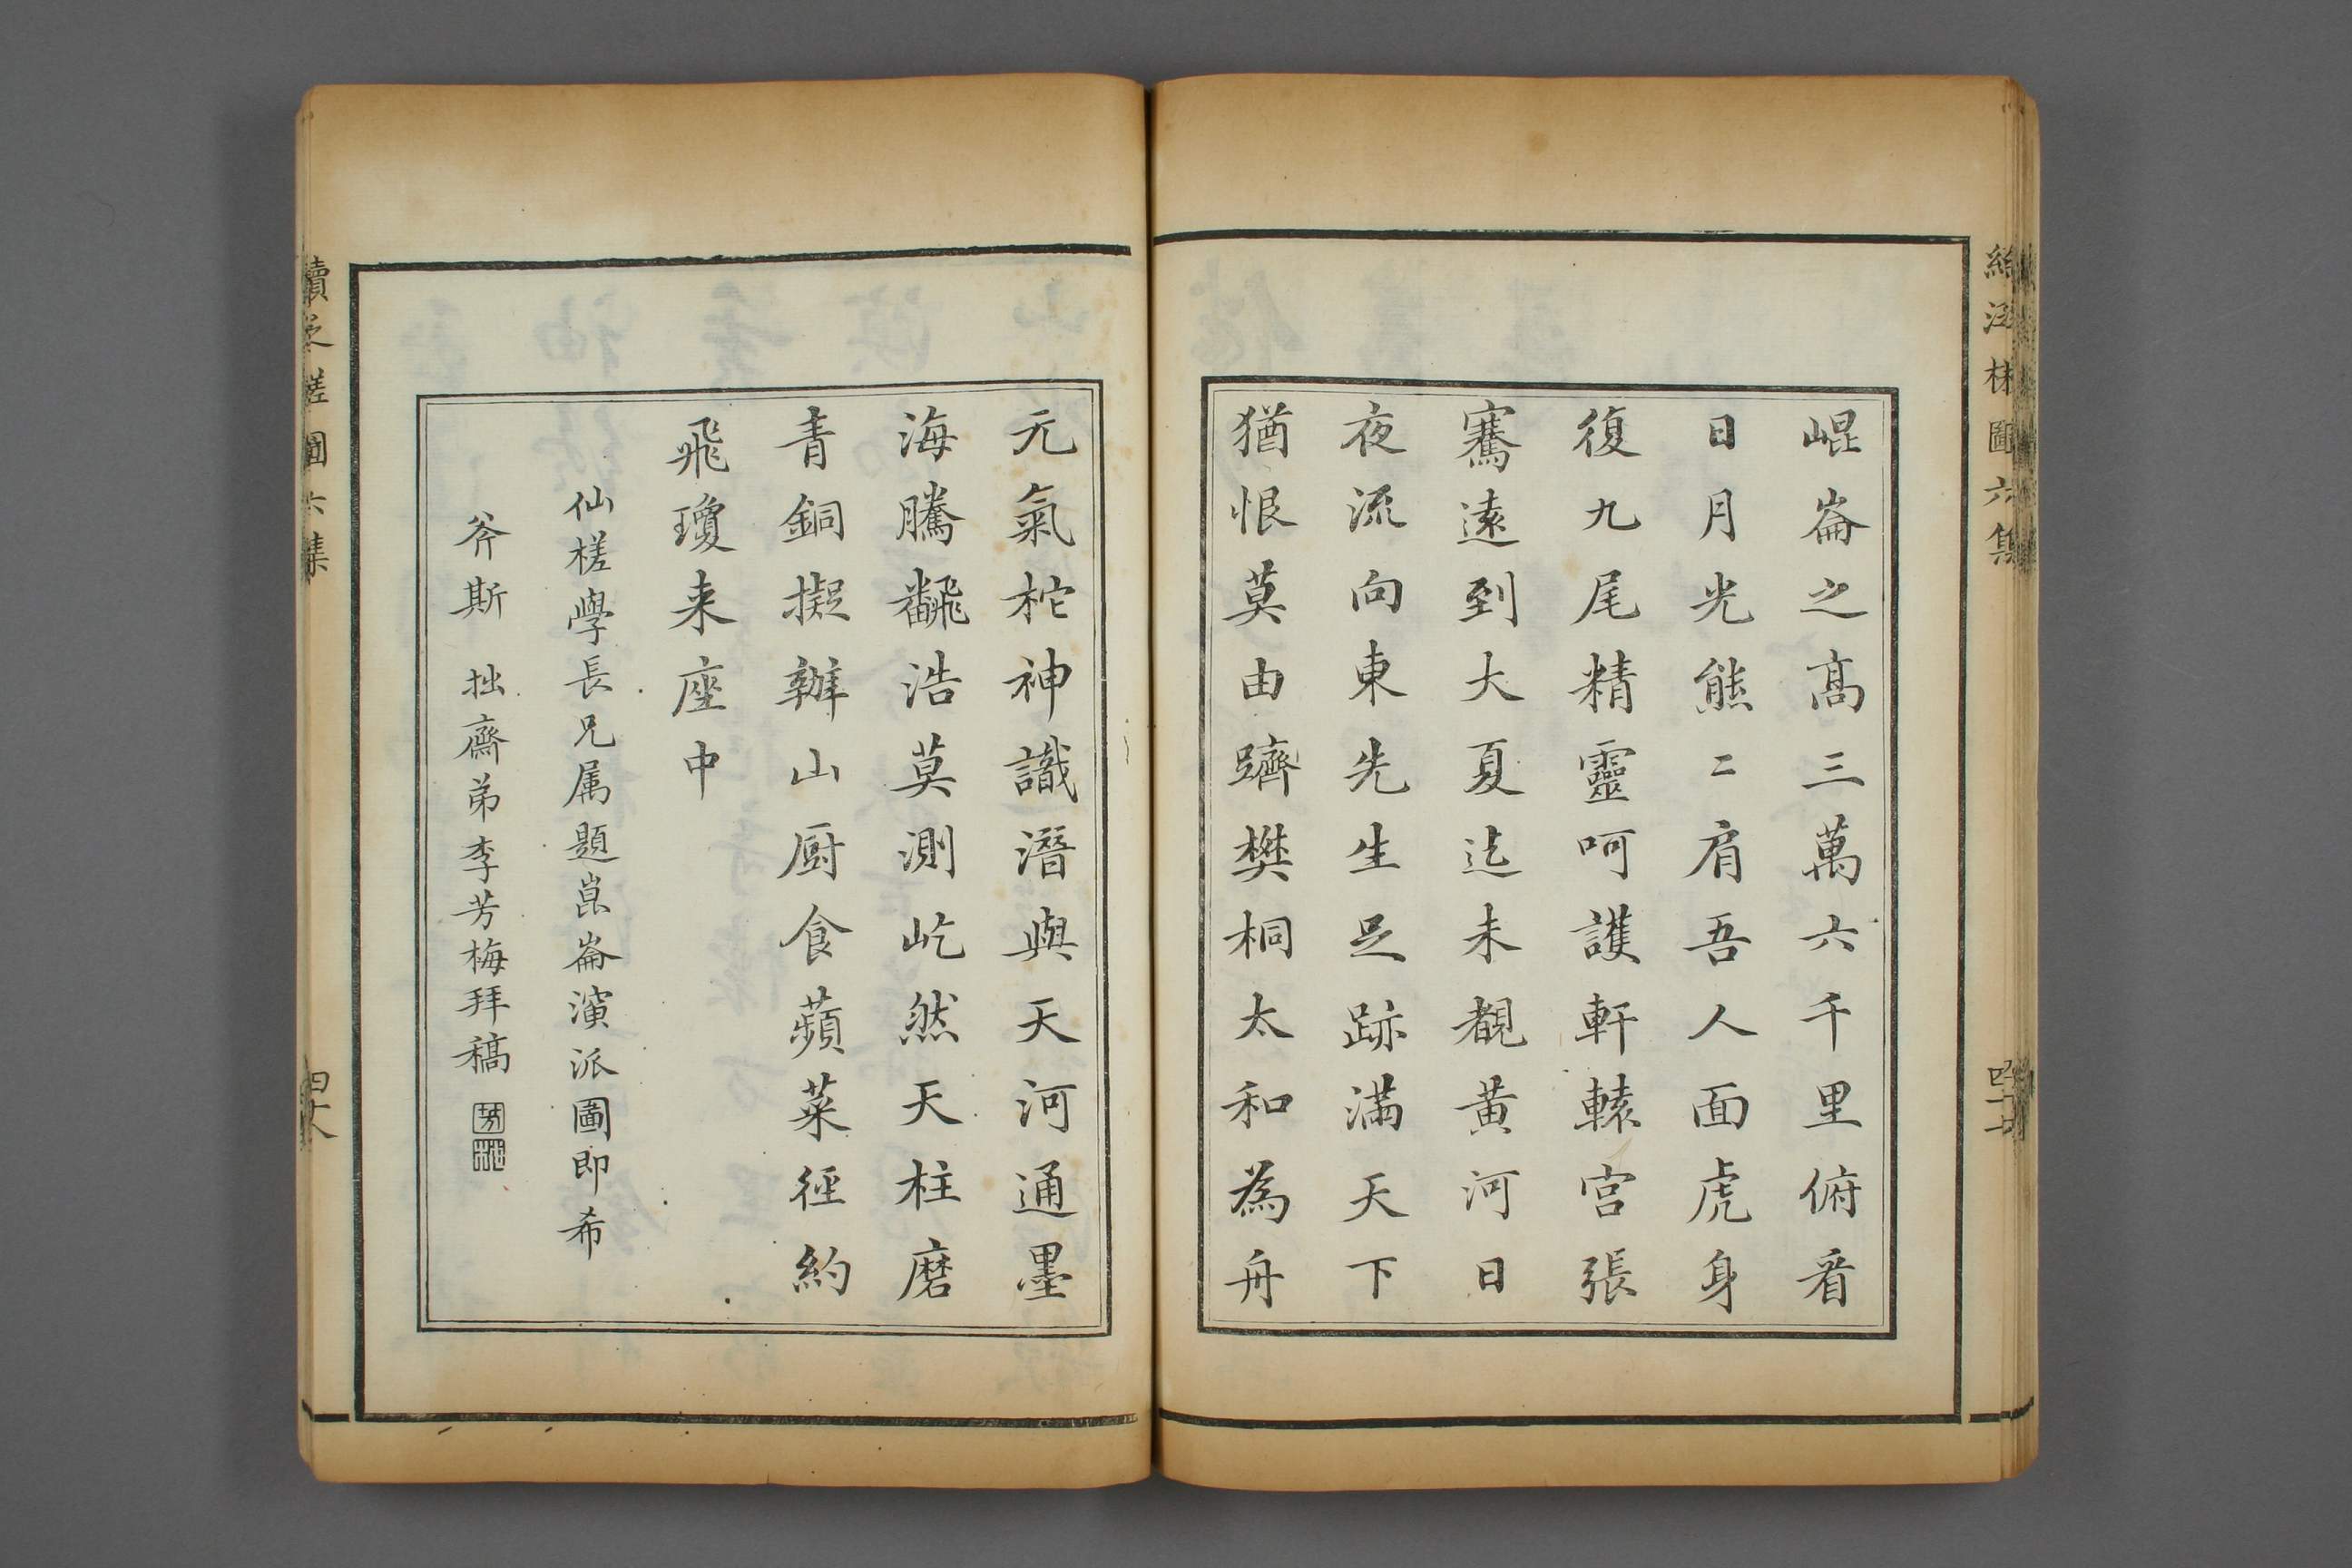 崐崙之髙三萬六千里俯看
日月光熊二肩吾人面虎身
復九尾精靈呵護軒轅宫張
騫遠到大夏迄未覩黄河日
夜流向東先生足跡滿天下
猶恨莫由躋樊桐太和為舟
元氣柁神識潛與天河通墨
海騰飜浩莫測屹然天柱磨
青銅擬辦山厨食蘋菜徑約
飛瓊来座中
仙槎學長兄属題崑崙演派圖即希
斧斯 拙齋弟李芳梅拜稿
續泛槎圖六集
四十八
圖六集
四十七